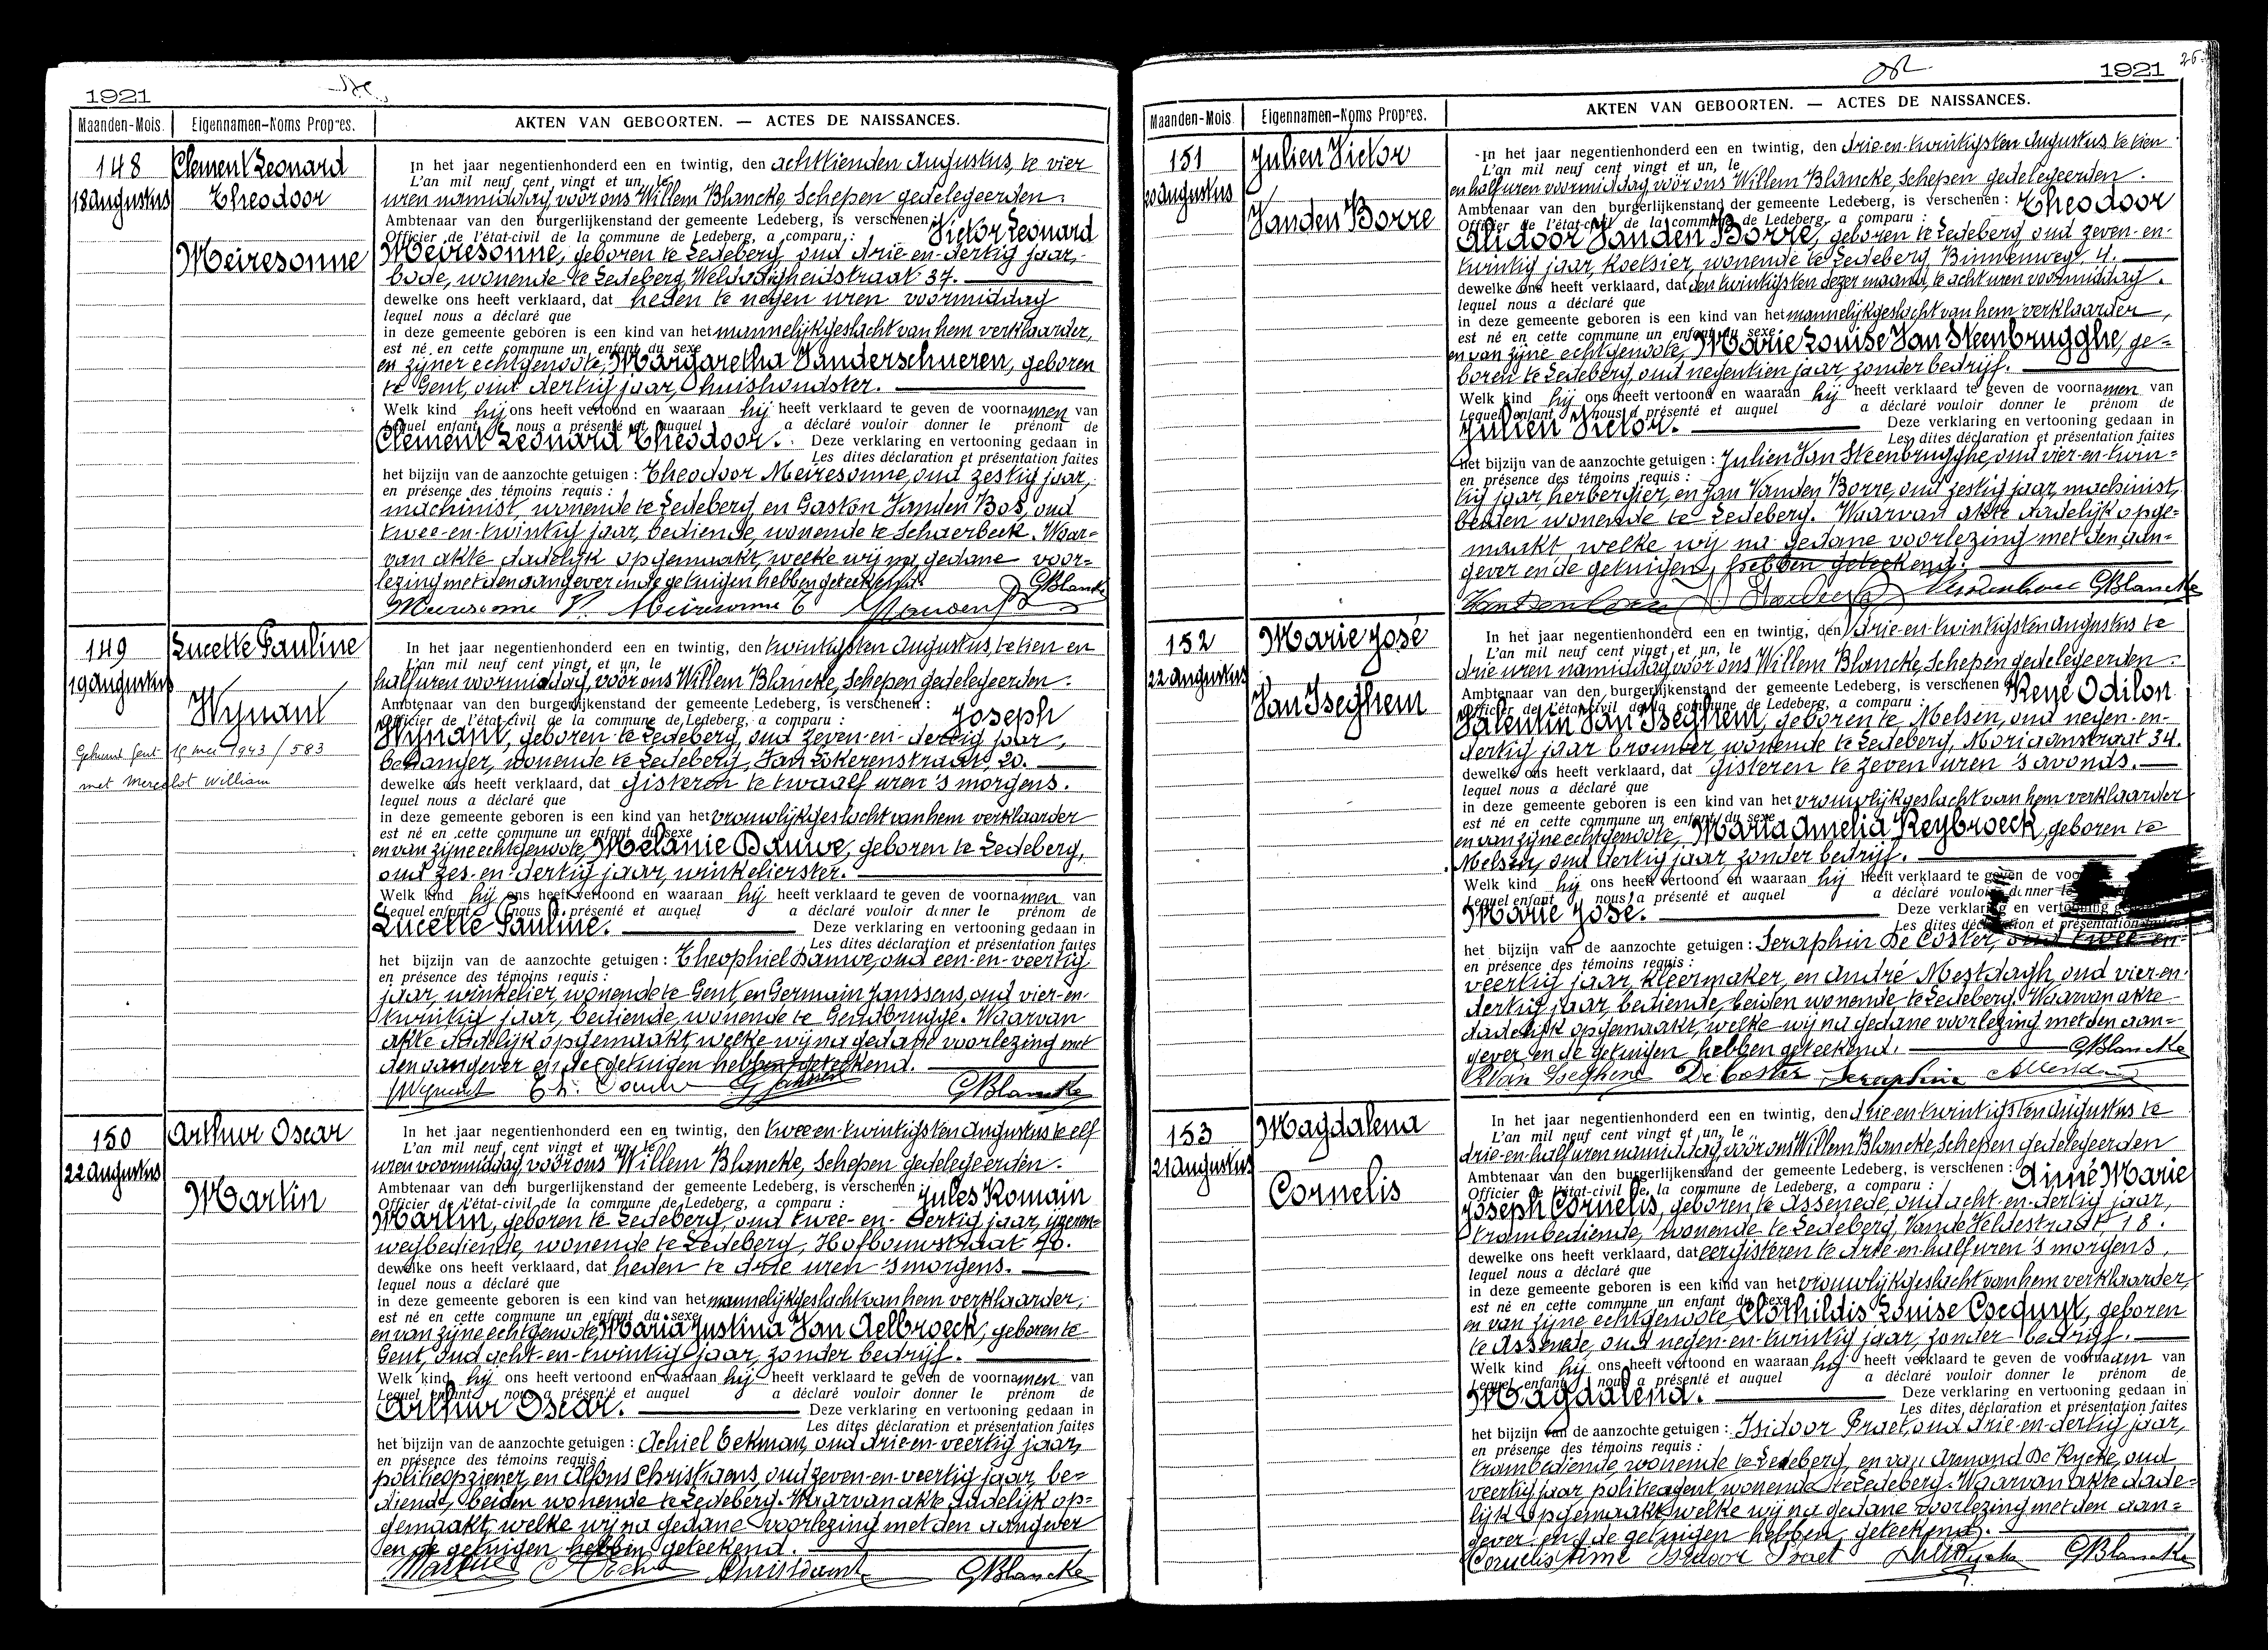 1921
Maanden-Mois.
Eigennamen-Noms Propres.
AKTEN VAN GEBOORTEN. — ACTES DE NAISSANCES.
148
18 augustus
Clement Leonard
Theodoor
Meiresonne
In het jaar negentienhonderd een en twintig, den achttienden Augustus, te vier
L'an mil neuf cent vingt et un, le
uren namiddag, voor ons Willem Blancke, Schepen gedelegeerden.
Ambtenaar van den burgerlijkenstand der gemeente Ledeberg, is verschenen : Victor Leonard
Officier de l'état-civil de la commune de Ledeberg, a comparu :
Meiresonne, geboren te Ledeberg, oud drie-en-dertig jaar,
bode, wonende te Ledeberg, Weldadigheidstraat 37.
dewelke ons heeft verklaard, dat heden te negen uren voormiddag
lequel nous a déclaré que
in deze gemeente geboren is een kind van het mannelijkgeslacht van hem verklaarder,
est né en cette commune un enfant du sexe
en zijner echtgenoote, Margaretha Vanderschueren, geboren
te Gent, oud dertig jaar, huishoudster.
Welk kind hij ons heeft vertoond en waaraan hij heeft verklaard te geven de voornamen van
Lequel enfant nous a présenté et auquel a déclaré vouloir donner le prénom de
Clement Leonard Theodoor. Deze verklaring en vertooning gedaan in
Les dites déclaration et présentation faites
het bijzijn van de aanzochte getuigen : Theodoor Meiresonne, oud zestig jaar,
en présence des témoins requis :
machinist, wonende te Ledeberg en Gaston Vanden Bos, oud
twee-en-twintig jaar, bediende, wonende te Schaerbeek. Waar-
van akte dadelijk opgemaakt, welke wij na gedane voor-
lezing met den aangever en de getuigen hebben geteekend.
GBlancke
Meiresonne V. Meiresonne T
149
19 augustus
Lucette Pauline
Wynant
Gehuwd Gent 15 mei 1943 / 583
met Mercelot William
In het jaar negentienhonderd een en twintig, den twintigsten Augustus, te tien en
L'an mil neuf cent vingt et un, le
half uren voormiddag, voor ons Willem Blancke, Schepen gedelegeerden.
Ambtenaar van den burgerlijkenstand der gemeente Ledeberg, is verschenen : Joseph
Officier de l'état-civil de la commune de Ledeberg, a comparu :
Wynant, geboren te Ledeberg, oud zeven-en-dertig jaar,
behanger, wonende te Ledeberg, Van Lokerenstraat, 20.
dewelke ons heeft verklaard, dat gisteren te twaalf uren 's morgens.
lequel nous a déclaré que
in deze gemeente geboren is een kind van het vrouwlijkgeslacht van hem verklaarder
est né en cette commune un enfant du sexe
en van zijne echtgenoote, Mélanie Dauwe, geboren te Ledeberg,
oud zes-en-dertig jaar, winkelierster.
Welk kind hij ons heeft vertoond en waaraan hij heeft verklaard te geven de voornamen van
Lequel enfant nous a présenté et auquel a déclaré vouloir donner le prénom de
Lucette Pauline. Deze verklaring en vertooning gedaan in
Les dites déclaration et présentation faites
het bijzijn van de aanzochte getuigen : Theophiel Dauwe, oud een-en-veertig
en présence des témoins requis :
jaar, winkelier, wonende te Gent, en Germain Janssens, oud vier-en-
twintig jaar, bediende, wonende te Gendbrugge. Waarvan
akte dadelijk opgemaakt, welke wij na gedane voorlezing met
den aangever en de getuigen hebben geteekend.
Wynant GBlancke
150
22 augustus
Arthur Oscar
Martin
In het jaar negentienhonderd een en twintig, den twee-en-twintigsten Augustus te elf
L'an mil neuf cent vingt et un, le
uren voormiddag, voor ons Willem Blancke, Schepen gedelegeerden.
Ambtenaar van den burgerlijkenstand der gemeente Ledeberg, is verschenen : Jules Romain
Officier de l'état-civil de la commune de Ledeberg, a comparu :
Martin, geboren te Ledeberg, oud twee-en-dertig jaar, ijzeren-
wegbediende, wonende te Ledeberg, Hofbouwstraat 40.
dewelke ons heeft verklaard, dat heden te drie uren 's morgens.
lequel nous a déclaré que
in deze gemeente geboren is een kind van het mannelijkgeslacht van hem verklaarder,
est né en cette commune un enfant du sexe
en van zijne echtgenoote, Maria Justina Van Aelbroeck, geboren te
Gent, oud acht-en-twintig jaar, zonder bedrijf.
Welk kind hij ons heeft vertoond en waaraan hij heeft verklaard te geven de voornamen van
Lequel enfant nous a présenté et auquel a déclaré vouloir donner le prénom de
Arthur Oscar. Deze verklaring en vertooning gedaan in
Les dites déclaration et présentation faites
het bijzijn van de aanzochte getuigen : Achiel Eekman, oud drie-en-veertig jaar,
en présence des témoins requis :
politieopziener, en Alfons Christiaens, oud zeven-en-veertig jaar, be-
diende, beiden wonende te Ledeberg. Waarvan akte dadelijk op-
gemaakt, welke wij na gedane voorlezing met den aangever
en de getuigen hebben geteekend.
GBlancke
1921
Maanden-Mois.
Eigennamen-Noms Propres.
AKTEN VAN GEBOORTEN. — ACTES DE NAISSANCES.
151
20 augustus
Julien Victor
Vanden Borre
In het jaar negentienhonderd een en twintig, den drie-en-twintigsten Augustus te tien
L'an mil neuf cent vingt et un, le
en half uren voormiddag vóór ons Willem Blancke, Schepen gedelegeerden.
Ambtenaar van den burgerlijkenstand der gemeente Ledeberg, is verschenen : Theodoor
Officier de l'état-civil de la commune de Ledeberg, a comparu :
Alidoor Vanden Borre, geboren te Ledeberg, oud zeven-en-
twintig jaar, koetsier, wonende te Ledeberg, Binnenweg, 4.
dewelke ons heeft verklaard, dat den twintigsten dezer maand, te acht uren voormiddag.
lequel nous a déclaré que
in deze gemeente geboren is een kind van het mannelijkgeslacht van hem verklaarder,
est né en cette commune un enfant du sexe
en van zijne echtgenoote, Marie Louise Van Steenbrugghe, ge-
boren te Ledeberg, oud negentien jaar, zonder bedrijf.
Welk kind hij ons heeft vertoond en waaraan hij heeft verklaard te geven de voornamen van
Lequel enfant nous a présenté et auquel a déclaré vouloir donner le prénom de
Julien Victor. Deze verklaring en vertooning gedaan in
Les dites déclaration et présentation faites
het bijzijn van de aanzochte getuigen : Julien Van Steenbrugghe, oud vier-en-twin-
en présence des témoins requis :
tig jaar, herbergier, en Jan Vanden Borre, oud zestig jaar, machinist,
beiden wonende te Ledeberg. Waarvan akte dadelijk opge-
maakt, welke wij na gedane voorlezing met den aan-
gever en de getuigen, hebben geteekend.
GBlancke
152
22 augustus
Marie José
Van Iseghem
In het jaar negentienhonderd een en twintig, den drie-en-twintigsten Augustus te
L'an mil neuf cent vingt et un, le
drie uren namiddag, voor ons Willem Blancke, Schepen gedelegeerden.
Ambtenaar van den burgerlijkenstand der gemeente Ledeberg, is verschenen : René Odilon
Officier de l'état-civil de la commune de Ledeberg, a comparu :
Valentin Van Iseghem, geboren te Melsen, oud negen-en-
dertig jaar, brouwer, wonende te Ledeberg, Moriaanstraat 34.
dewelke ons heeft verklaard, dat gisteren te zeven uren 's avonds.
lequel nous a déclaré que
in deze gemeente geboren is een kind van het vrouwlijkgeslacht van hem verklaarder
est né en cette commune un enfant du sexe
en van zijne echtgenoote, Maria Amelia Reybroeck, geboren te
Melsen, oud dertig jaar, zonder bedrijf.
Welk kind hij ons heeft vertoond en waaraan hij heeft verklaard te geven de
Lequel enfant nous a présenté et auquel a déclaré vouloir donner
Marie José. Deze verklaring en vertooning
Les dites déclaration et présentation faites
het bijzijn van de aanzochte getuigen : Seraphin De Coster, oud twee-en-
en présence des témoins requis :
veertig jaar, kleermaker, en André Mestdagh, oud vier-en-
dertig jaar, bediende, beiden wonende te Ledeberg. Waarvan akte
dadelijk opgemaakt, welke wij na gedane voorlezing met den aan-
gever en de getuigen hebben geteekend.
GBlancke
RVan Iseghem De Coster Seraphin
153
21 augustus
Magdalena
Cornelis
In het jaar negentienhonderd een en twintig, den drie-en-twintigsten Augustus te
L'an mil neuf cent vingt et un, le
drie-en-half uren namiddag, vóór ons Willem Blancke, Schepen gedelegeerden
Ambtenaar van den burgerlijkenstand der gemeente Ledeberg, is verschenen : Aimé Marie
Officier de l'état-civil de la commune de Ledeberg, a comparu :
Joseph Cornelis, geboren te Assenede, oud acht-en-dertig jaar,
trambediende, wonende te Ledeberg, Vande Veldestraat, 18.
dewelke ons heeft verklaard, dat eergisteren te drie-en-half uren 's morgens,
lequel nous a déclaré que
in deze gemeente geboren is een kind van het vrouwlijkgeslacht van hem verklaarder,
est né en cette commune un enfant du sexe
en van zijne echtgenoote, Clothildis Louise Csequyt, geboren
te Assenede, oud negen-en-twintig jaar, zonder bedrijf.
Welk kind hij ons heeft vertoond en waaraan hij heeft verklaard te geven de voornaam van
Lequel enfant nous a présenté et auquel a déclaré vouloir donner le prénom de
Magdalena. Deze verklaring en vertooning gedaan in
Les dites déclaration et présentation faites
het bijzijn van de aanzochte getuigen : Isidoor Praet, oud drie-en-dertig jaar,
en présence des témoins requis :
trambediende, wonende te Ledeberg, en van Armand De Rycke, oud
veertig jaar politieagent, wonende te Ledeberg. Waarvan akte dade-
lijk opgemaakt, welke wij na gedane voorlezing met den aan-
gever en de getuigen hebben geteekend.
Cornelis Aimé Isidoor Praet GBlancke